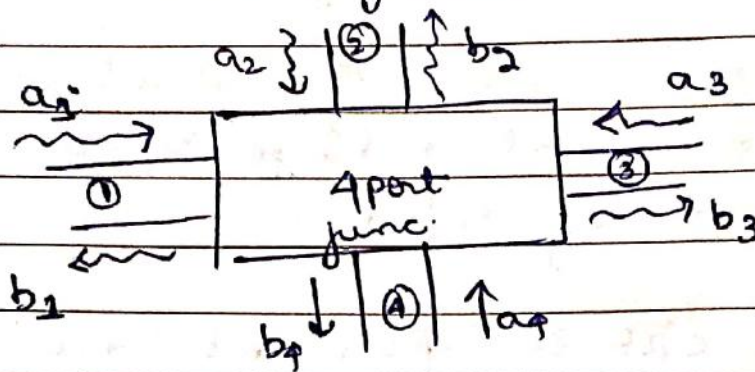 a2 ② b2
a1 a3
① 4port ③
junc.
b1 b3
b4 ④ a4